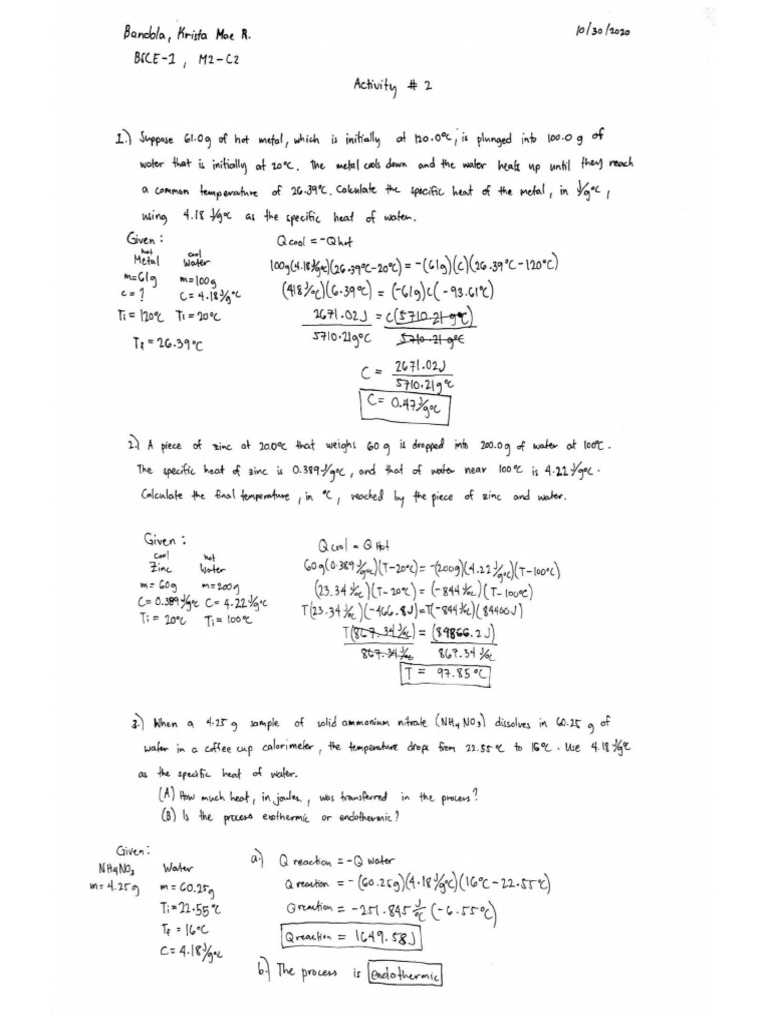 Bandola, Krista Mae R.
10/30/2020
BSCE-1, M2-C2
Activity # 2
1.) Suppose 61.0g of hot metal, which is initially at 120.0°C, is plunged into 100.0 g of
water that is initially at 20°C. The metal cools down and the water heats up until they reach
a common temperature of 26.39°C. Calculate the specific heat of the metal, in J/g°C,
using 4.18 J/g°C as the specific heat of water.
Given:
hot cool
Metal Water
m=61g m=100g
c=? C=4.18J/g°C
Ti=120°C Ti=20°C
Tf=26.39°C
Qcool=-Qhot
100g(4.18J/g°C)(26.39°C-20°C)=-(61g)(C)(26.39°C-120°C)
(418J/°C)(6.39°C)=(-61g)C(-93.61°C)
2671.02J = C(5710.21g°C)
5710.21g°C 5710.21g°C
C= 2671.02J
5710.21g°C
C=0.47J/g°C
2.) A piece of zinc at 20.0°C that weighs 60 g is dropped into 200.0g of water at 100°C.
The specific heat of zinc is 0.389 J/g°C, and that of water near 100°C is 4.22 J/g°C.
Calculate the final temperature, in °C, reached by the piece of zinc and water.
Given:
cool hot
Zinc Water
m=60g m=200g
C=0.389J/g°C C=4.22J/g°C
Ti=20°C Ti=100°C
Qcool=QHot
60g(0.389J/g°C)(T-20°C)=-(200g)(4.22J/g°C)(T-100°C)
(23.34J/°C)(T-20°C)=(-844J/°C)(T-100°C)
T(23.34J/°C)(-466.8J)=T(-844J/°C)(84400J)
T(867.34J/°C)=(84866.2J)
867.34J/°C 867.34J/°C
T = 97.85°C
3.) When a 4.25 g sample of solid ammonium nitrate (NH4NO3) dissolves in 60.25 g of
water in a coffee cup calorimeter, the temperature drops from 22.55°C to 16°C. Use 4.18J/g°C
as the specific heat of water.
(A) How much heat, in joules, was transferred in the process?
(B) Is the process exothermic or endothermic?
Given:
NH4NO3 Water
m=4.25g m=60.25g
Ti=22.55°C
Tf=16°C
C=4.18J/g°C
a.) Q reaction=-Q water
Q reaction=-(60.25g)(4.18J/g°C)(16°C-22.55°C)
Qreaction=-251.845 J/°C(-6.55°C)
Qreaction = 1649.58J
b.) The process is endothermic